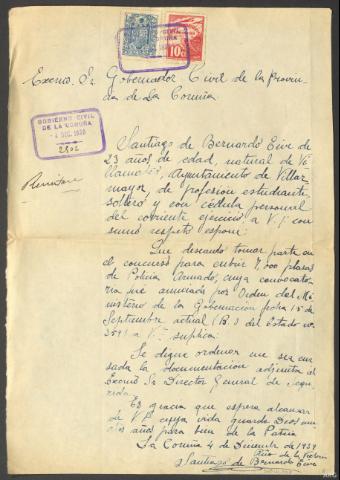 Excmo. Sr. Gobernador Civil de la Provin-
cia de La Coruña
10
GOBIERNO CIVIL
DE LA CORUÑA
4 DIC. 1939
2802
Santiago de Bernardo Eive de
23 años de edad, natural de
Ayuntamiento de Villar
mayor, de profesión estudiante
soltero y con cédula personal
del corriente ejercicio a V.E. con
sumo respeto expone:
Que deseando tomar parte en
el concurso para cubrir 7,000 plazas
de Policía Armada, cuya convocato-
ria fue anunciada por Orden del Mi-
nisterio de la Gobernación fecha 15 de
Septiembre actual (B. O del Estado nº
a V.E. suplica:
Se digne ordenar me sea cur-
sada la documentación adjunta al
Excmo Sr Director General de Segu-
ridad.
Es gracia que espera alcanzar
de V.E. cuya vida guarde Dios mu-
chos años para bien de la Patria
La Coruña 4 de Diciembre de 1939
Año de la Victoria
Santiago de Bernardo Eive